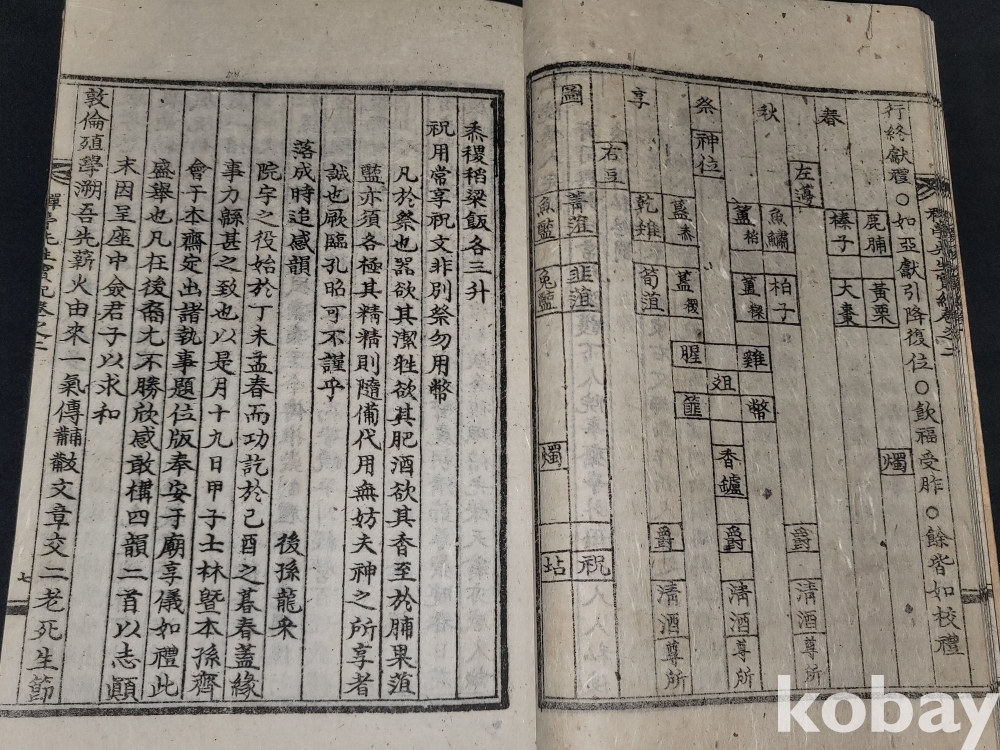 行終獻禮○如亞獻引降復位○飮福受胙○餘皆如校禮
春秋享祭圖
神位
左籩
右豆
鹿脯
黃栗
榛子
大棗
魚鱐
柏子
簠稻
簠粱
簋黍
簋稷
乾雉
筍菹
菁菹
韭菹
魚醢
兔醢
腥
雞
俎
篚
幣
燭
香鑪
燭
爵
爵
爵
祝
坫
淸酒尊所
淸酒尊所
淸酒尊所
黍稷稻粱飯各三升
祝用常享祝文非別祭勿用幣
凡於祭也器欲其潔牲欲其肥酒欲其香至於脯果菹
醢亦須各極其精精則隨備代用無妨夫神之所享者
誠也厥臨孔昭可不謹乎
落成時追感韻
後孫龍釆
院字之役始於丁未孟春而功訖於己酉之暮春蓋緣
事力縣甚之致也以是月十九日甲子士林曁本孫齊
會于本齋定出諸執事題位版奉安于廟享儀如禮此
盛擧也凡在後裔尤不勝欣感敢構四韻二首以志顚
末因呈座中僉君子以求和
敦倫殖學溯吾先薪火由來一氣傳黼黻文章交二老死生節
七
kobay